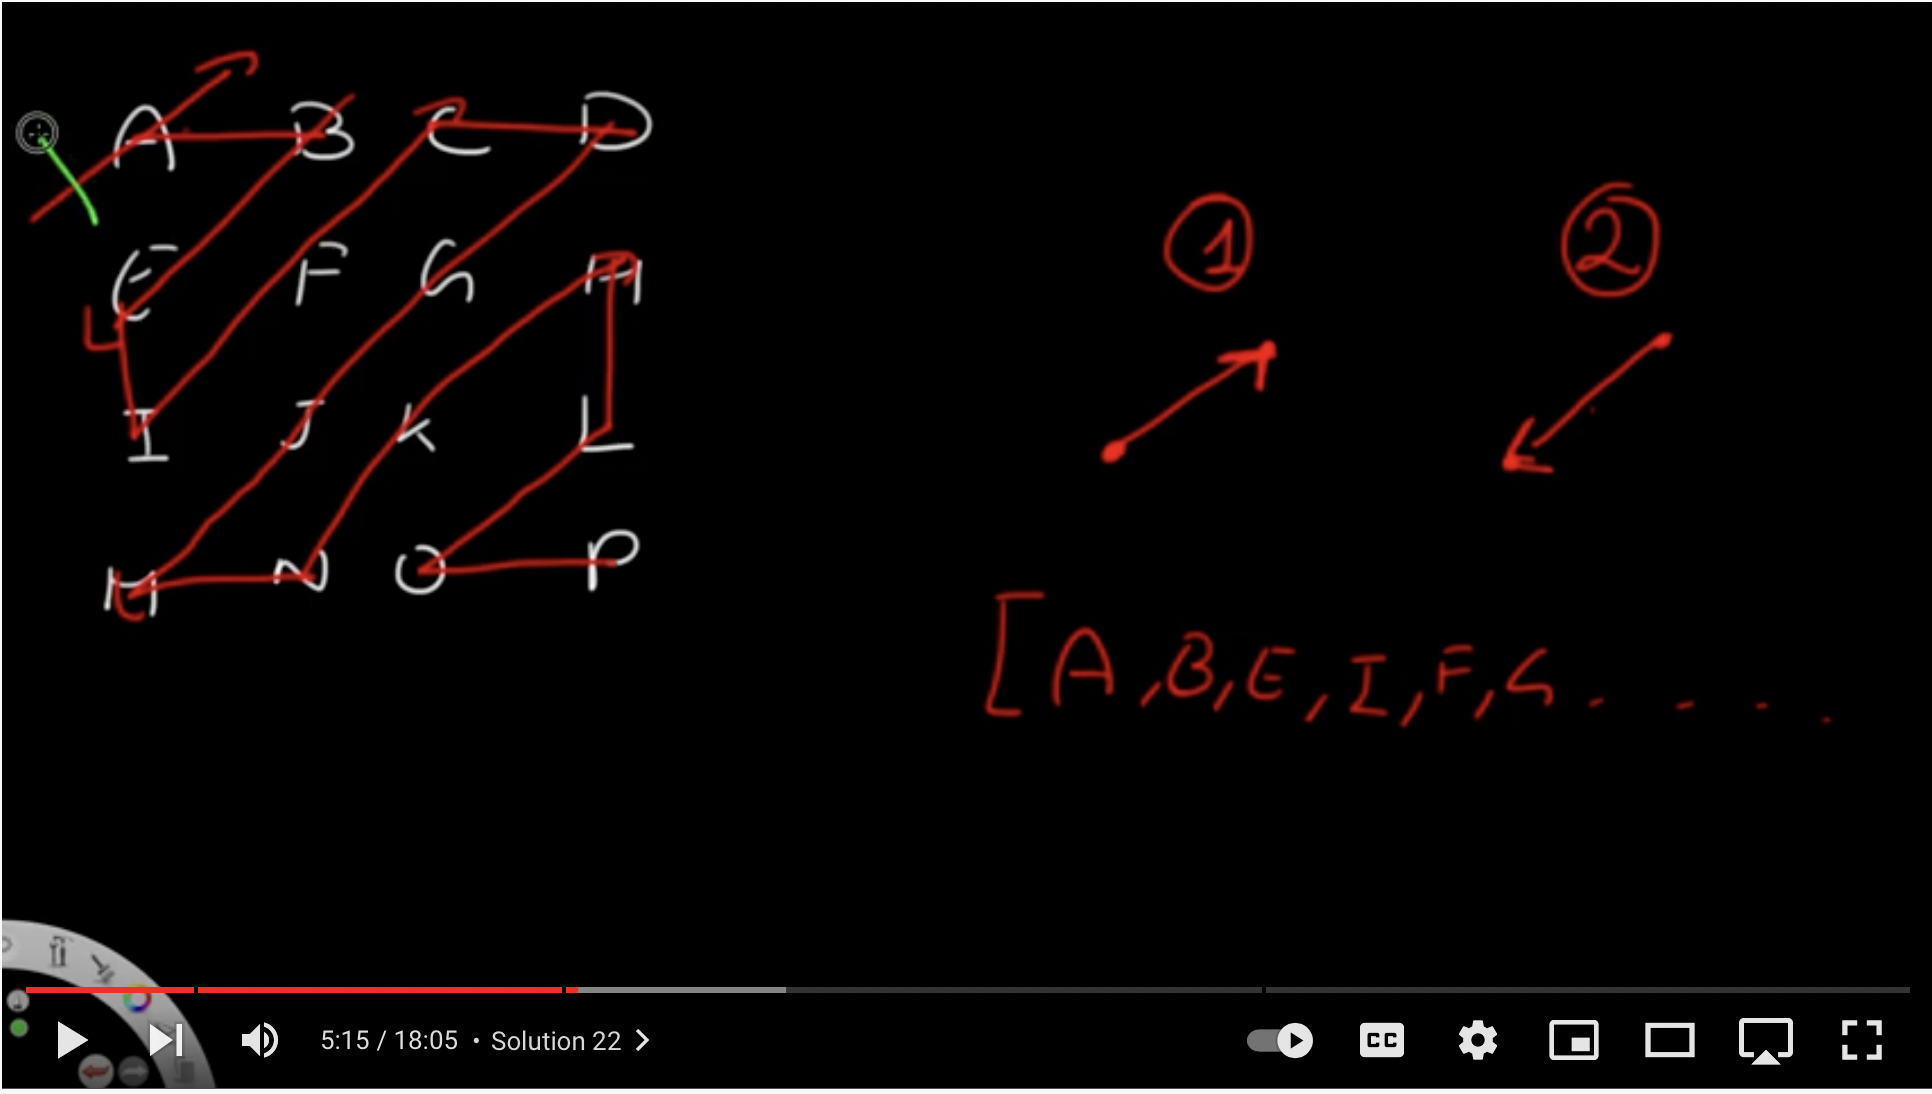 A B C D
E F G H
I J K L
M N O P
1 2
[A, B, E, I, F, G. . . . .
5:15 / 18:05 • Solution 22
CC